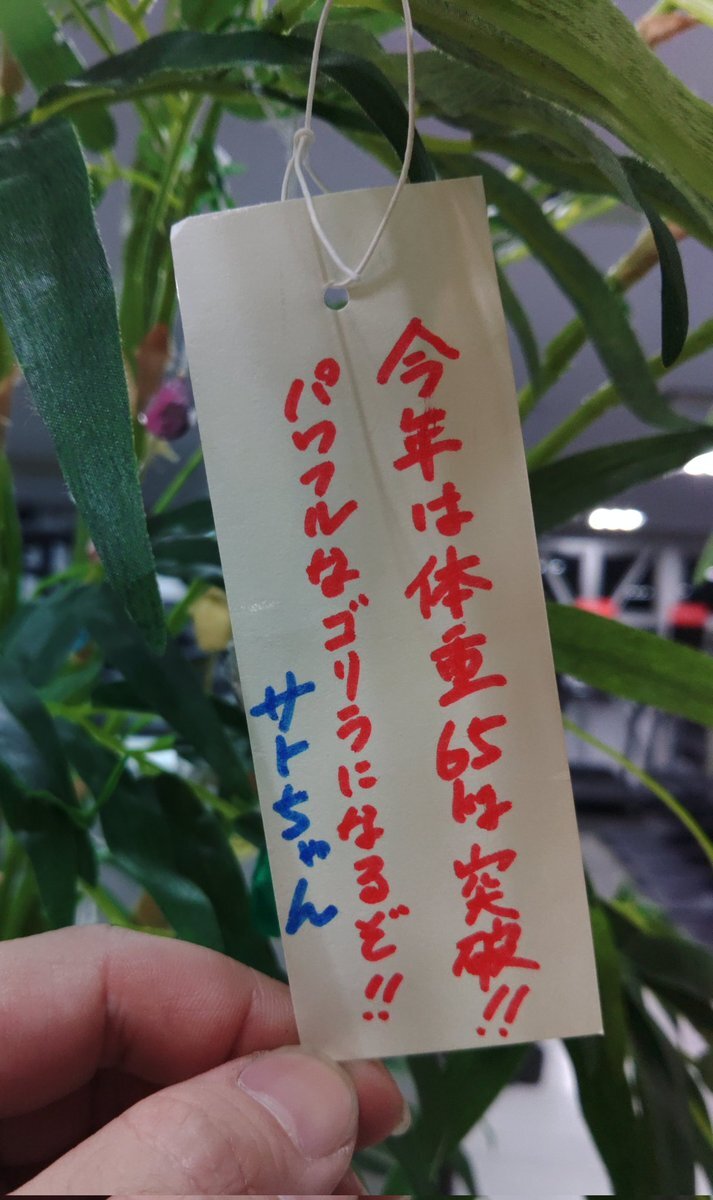 今年は体重65kg突破!!
パワフルなゴリラになるぞ!!
サトちゃん